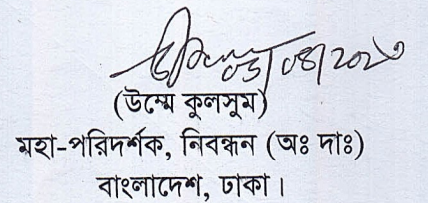 ০১/০৪/২০২৩
(উম্মে কুলসুম)
মহা-পরিদর্শক, নিবন্ধন (অঃ দাঃ)
বাংলাদেশ, ঢাকা।